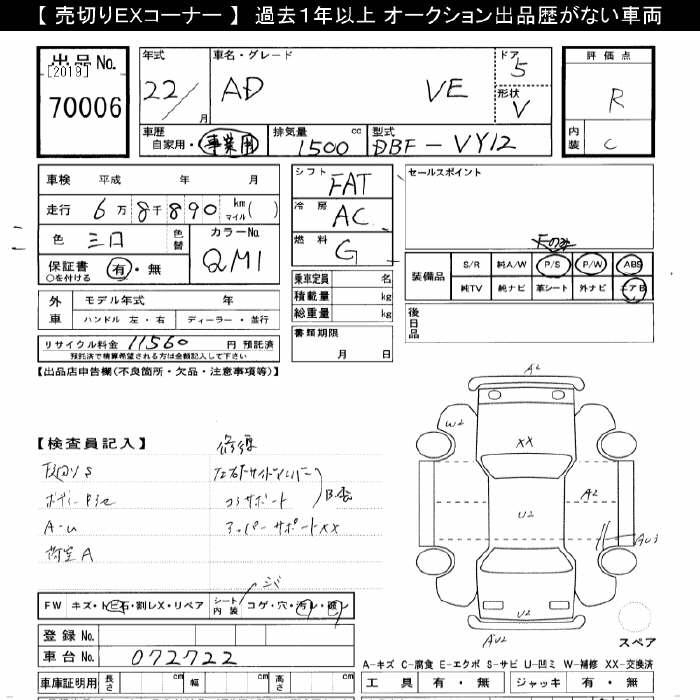 【 売切りEXコーナー 】 過去1年以上 オークション出品歴がない車両
出品 No.
[2019]
70006
年式
22/
月
車名・グレード
AD VE
ドア
5
形状
V
評価点
R
内装
C
車歴
自家用・事業用
排気量
1500 cc
型式
DBF-VY12
車検 平成 年 月
走行 6万8千890 km マイル ( )
色
色替
カラーNo.
QM1
保証書 有・無
○を付ける
外車
モデル年式 年
ハンドル 左・右 ディーラー・並行
リサイクル料金 11560 円 預託済
預託済で精算希望される方は金額記入して下さい
シフト
FAT
冷房
AC
燃料
G
乗車定員 名
積載量 kg
総重量 kg
書類期限
月 日
セールスポイント
装備品
S/R 純A/W P/S P/W ABS
純TV 純ナビ 革シート 外ナビ エアB
後日品
【出品店申告欄(不良箇所・欠品・注意事項等)】
【検査員記入】
A-u
荷室A
修復
コアサポート
アッパーサポートXX
FW キズ・トビ石・割レX・リペア
シート内装
コゲ・穴・汚レ・破レ
A2
W2
XX
A2
U2
U2
AU2
スペア
登録 No.
車台 No. 072722
車庫証明用 長さ cm 幅 cm 高さ cm
A-キズ C-腐食 E-エクボ S-サビ U-凹ミ W-補修 XX-交換済
工具 有・無 ジャッキ 有・無